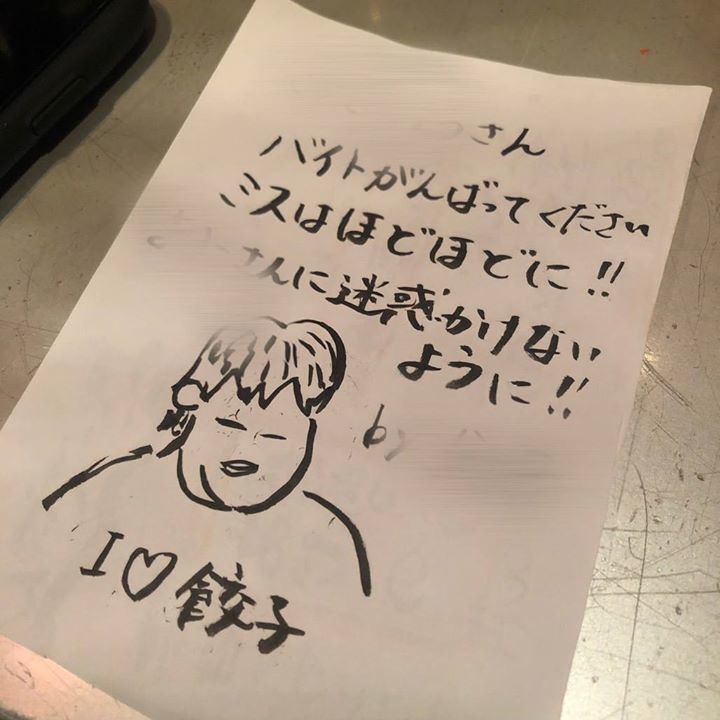 さん
バイトがんばってください
ミスはほどほどに!!
さんに迷惑かけない
ように!!
by
I♡餃子